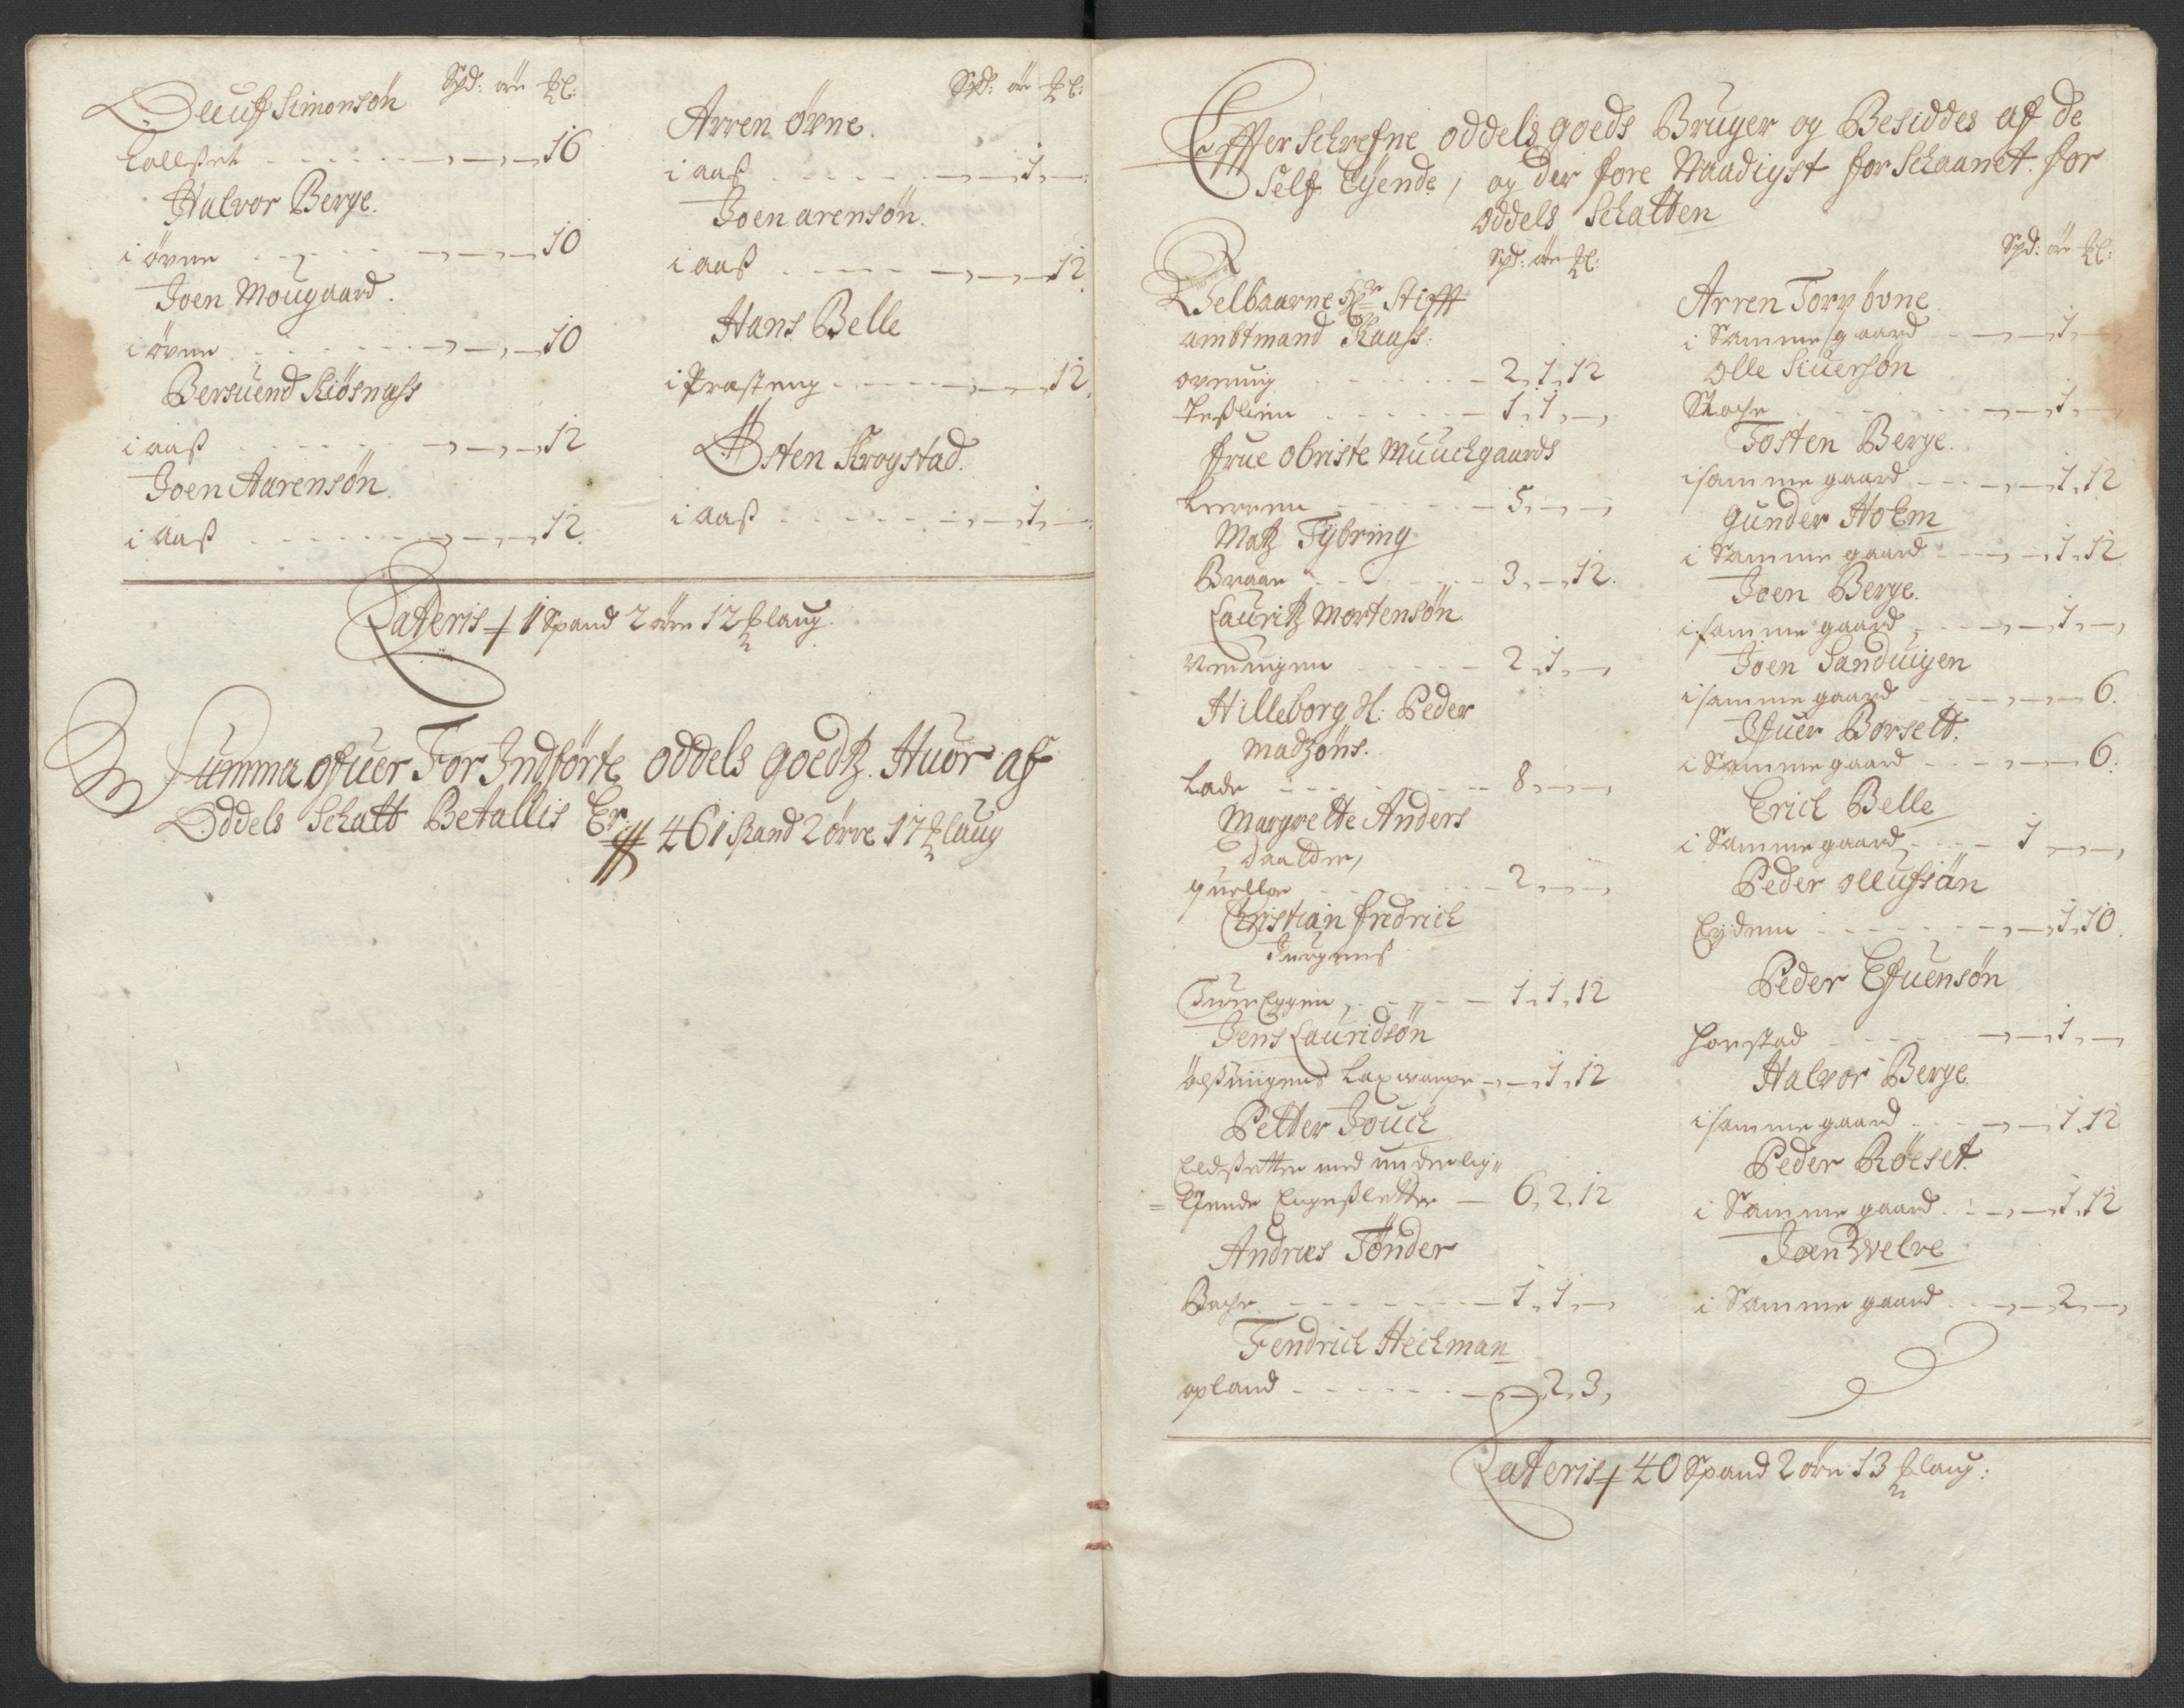 Spd: øre ℔l:
Oluff Simonsøn
Kollset - - - - - 16
Halvor Berge.
i øvne - - - - 10
Joen Mougaard.
i øvne - - - - 10
Bersuend Kiøsnæss
i aaß - - - - 12
Joen Aarensøn.
i aaß - - - - 12.
Spd: øre ℔l:
Arren Øvne.
i aaß - - - - 1, -
Joen arensøn.
i aaß - - - - 12.
Hans Belle
i Præsteng - - - - 12.
Østen Krogstad.
i aaß - - - - 1, -
Lateris 1 Spand 2 øre 12 ℔laug.
Summa ofuer For Indførte oddels goedtz. Huor af
Oddels Schatt Betallis Er:
461 spand 2 ørre 17 ℔laug
Effter Schrefne oddels goeds Bruger og Besiddes af de
Self Eÿende, og der fore Naadigst for Schaanet for
oddels Schatten
Spd: øre ℔l:
Velbaarne Hr Stifft
ambtmand Kaass:
- - - 2, 1, 12
- - - 1, 1, -,
frue Obriste Muuchgaards
Leeren - - - 5, -, -,
Matz Tÿbring
Braae - - - 3, -, 12.
Lauritz Mortensøn.
- - - 2, 1, -,
Hilleborg Sl: Peder
Madzøns.
Lade - - - 8, -, -,
Margrette Anders
daatter,
quello - - - 2, -, -,
Christian fredrich
Jurgens
- - - 1, 1, 12
Jens Lauridsøn
Laxwarpe -, 1, 12
Petter Jouch
Eldsletter med underlig„
=gende Engesletter - 6, 2, 12
Andræs Tønder
Bache - - - 1, 1, -,
Fendrich Heckman
opland - - - -, 2, 3,
Spd: øre ℔l:
Arren Torpøvne
i Samme gaard - - - 1, -
Olle Siuersøn
- - - 1, -
Tosten Berge.
i samme gaard - - - 1, 12
gunder Holm
i Samme gaard - - - 1, 12
Joen Berge.
i samme gaard - - - 1, -,
Joen Sanduigen
i samme gaard - - - 6.
Ifuer Borsett.
i Samme gaard - - - 6.
Erich Belle
i Samme gaard - - - 1, -, -,
Peder ollufsøn
Eÿdem - - - 1, 10.
Peder Efuensøn
Horstad - - - 1, -,
Halvor Berge.
i samme gaard - - - 1, 12
Peder Røeset.
i Samme gaard - - - 1, 12
Joen Welve
i Samme gaard - - - 2, -,
Lateris 40 Spand 2 øre 13 ℔laug: